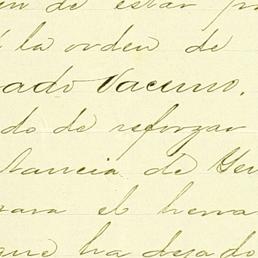 en de estar
la orden de
ado Vacuno.
do de reforzar
tancia de
para el
que ha dejado